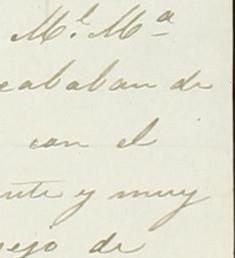 M.ˡ Mª
cababan de
con el
nte y muy
sejo de